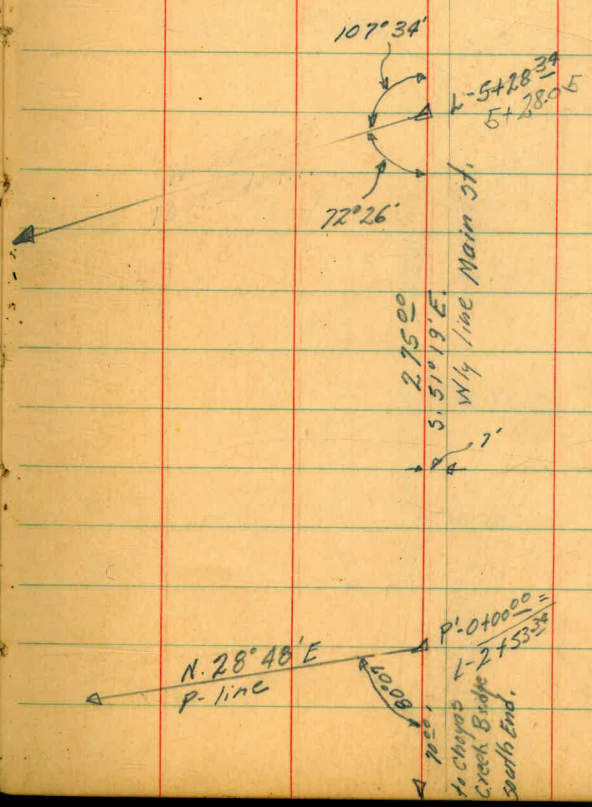 107°34'
L-5+28.34
5+28.05
72°26'
275.00
S. 51°19' E.
W'ly line Main St.
7'
P'-0+00.00 =
L-2+53.34
N. 28°48' E
P-line
80°07'
to Choyas
Creek Bridge
South End.